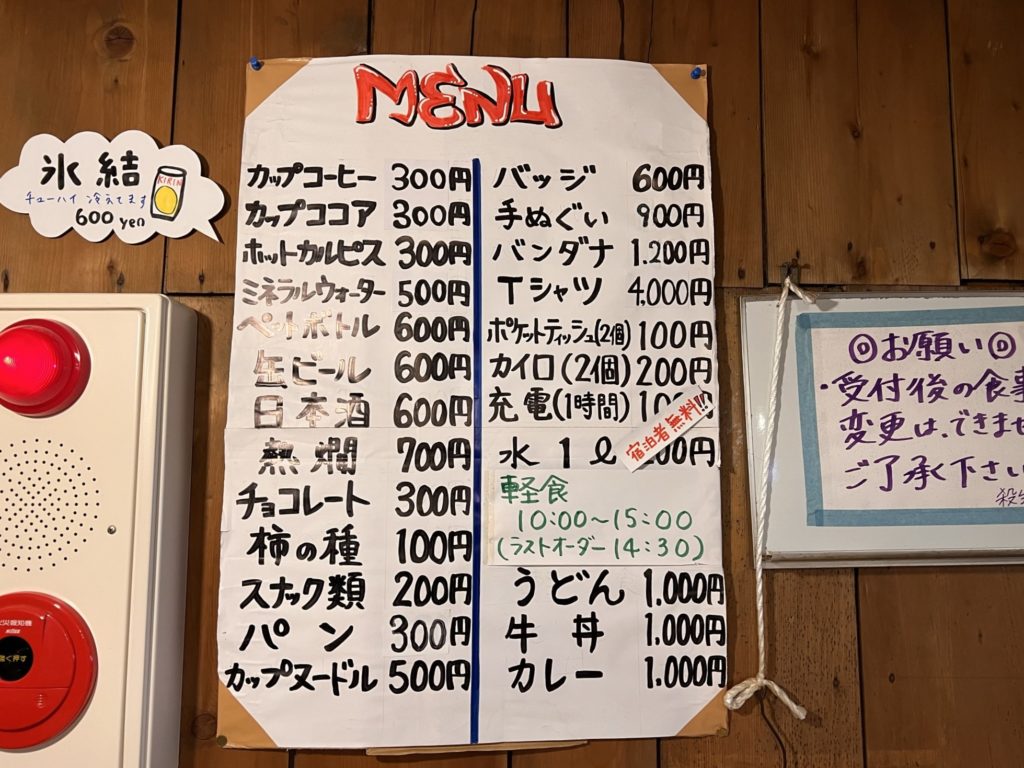 MENU
氷結
チューハイ 冷えてます
600 yen
KIRIN
カップコーヒー 300円
カップココア 300円
ホットカルピス 300円
ミネラルウォーター 500円
ペットボトル 600円
生ビール 600円
日本酒 600円
熱燗 700円
チョコレート 300円
柿の種 100円
スナック類 200円
パン 300円
カップヌードル 500円
バッジ 600円
手ぬぐい 900円
バンダナ 1.200円
Tシャツ 4.000円
ポケットティッシュ(2個) 100円
カイロ(2個) 200円
充電(1時間)
宿泊者無料!!
水 1ℓ
軽食
10:00〜15:00
(ラストオーダー 14:30)
うどん 1.000円
牛丼 1.000円
カレー 1.000円
お願い
・受付後の食事
変更は、できませ
ご了承下さい
火災報知機
強く押す